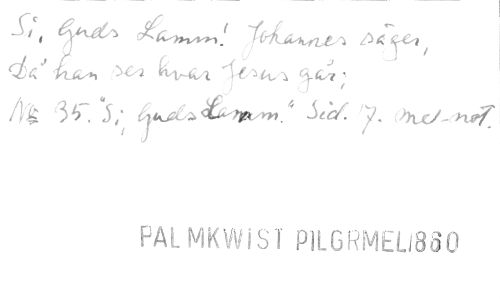 Si, Guds Lamm! Johannes säger,
Då han ser hvar Jesus går;
No 35. "Si, Guds Lamm." Sid. 17. med not.
PALMKWIST PILGRMEL1860